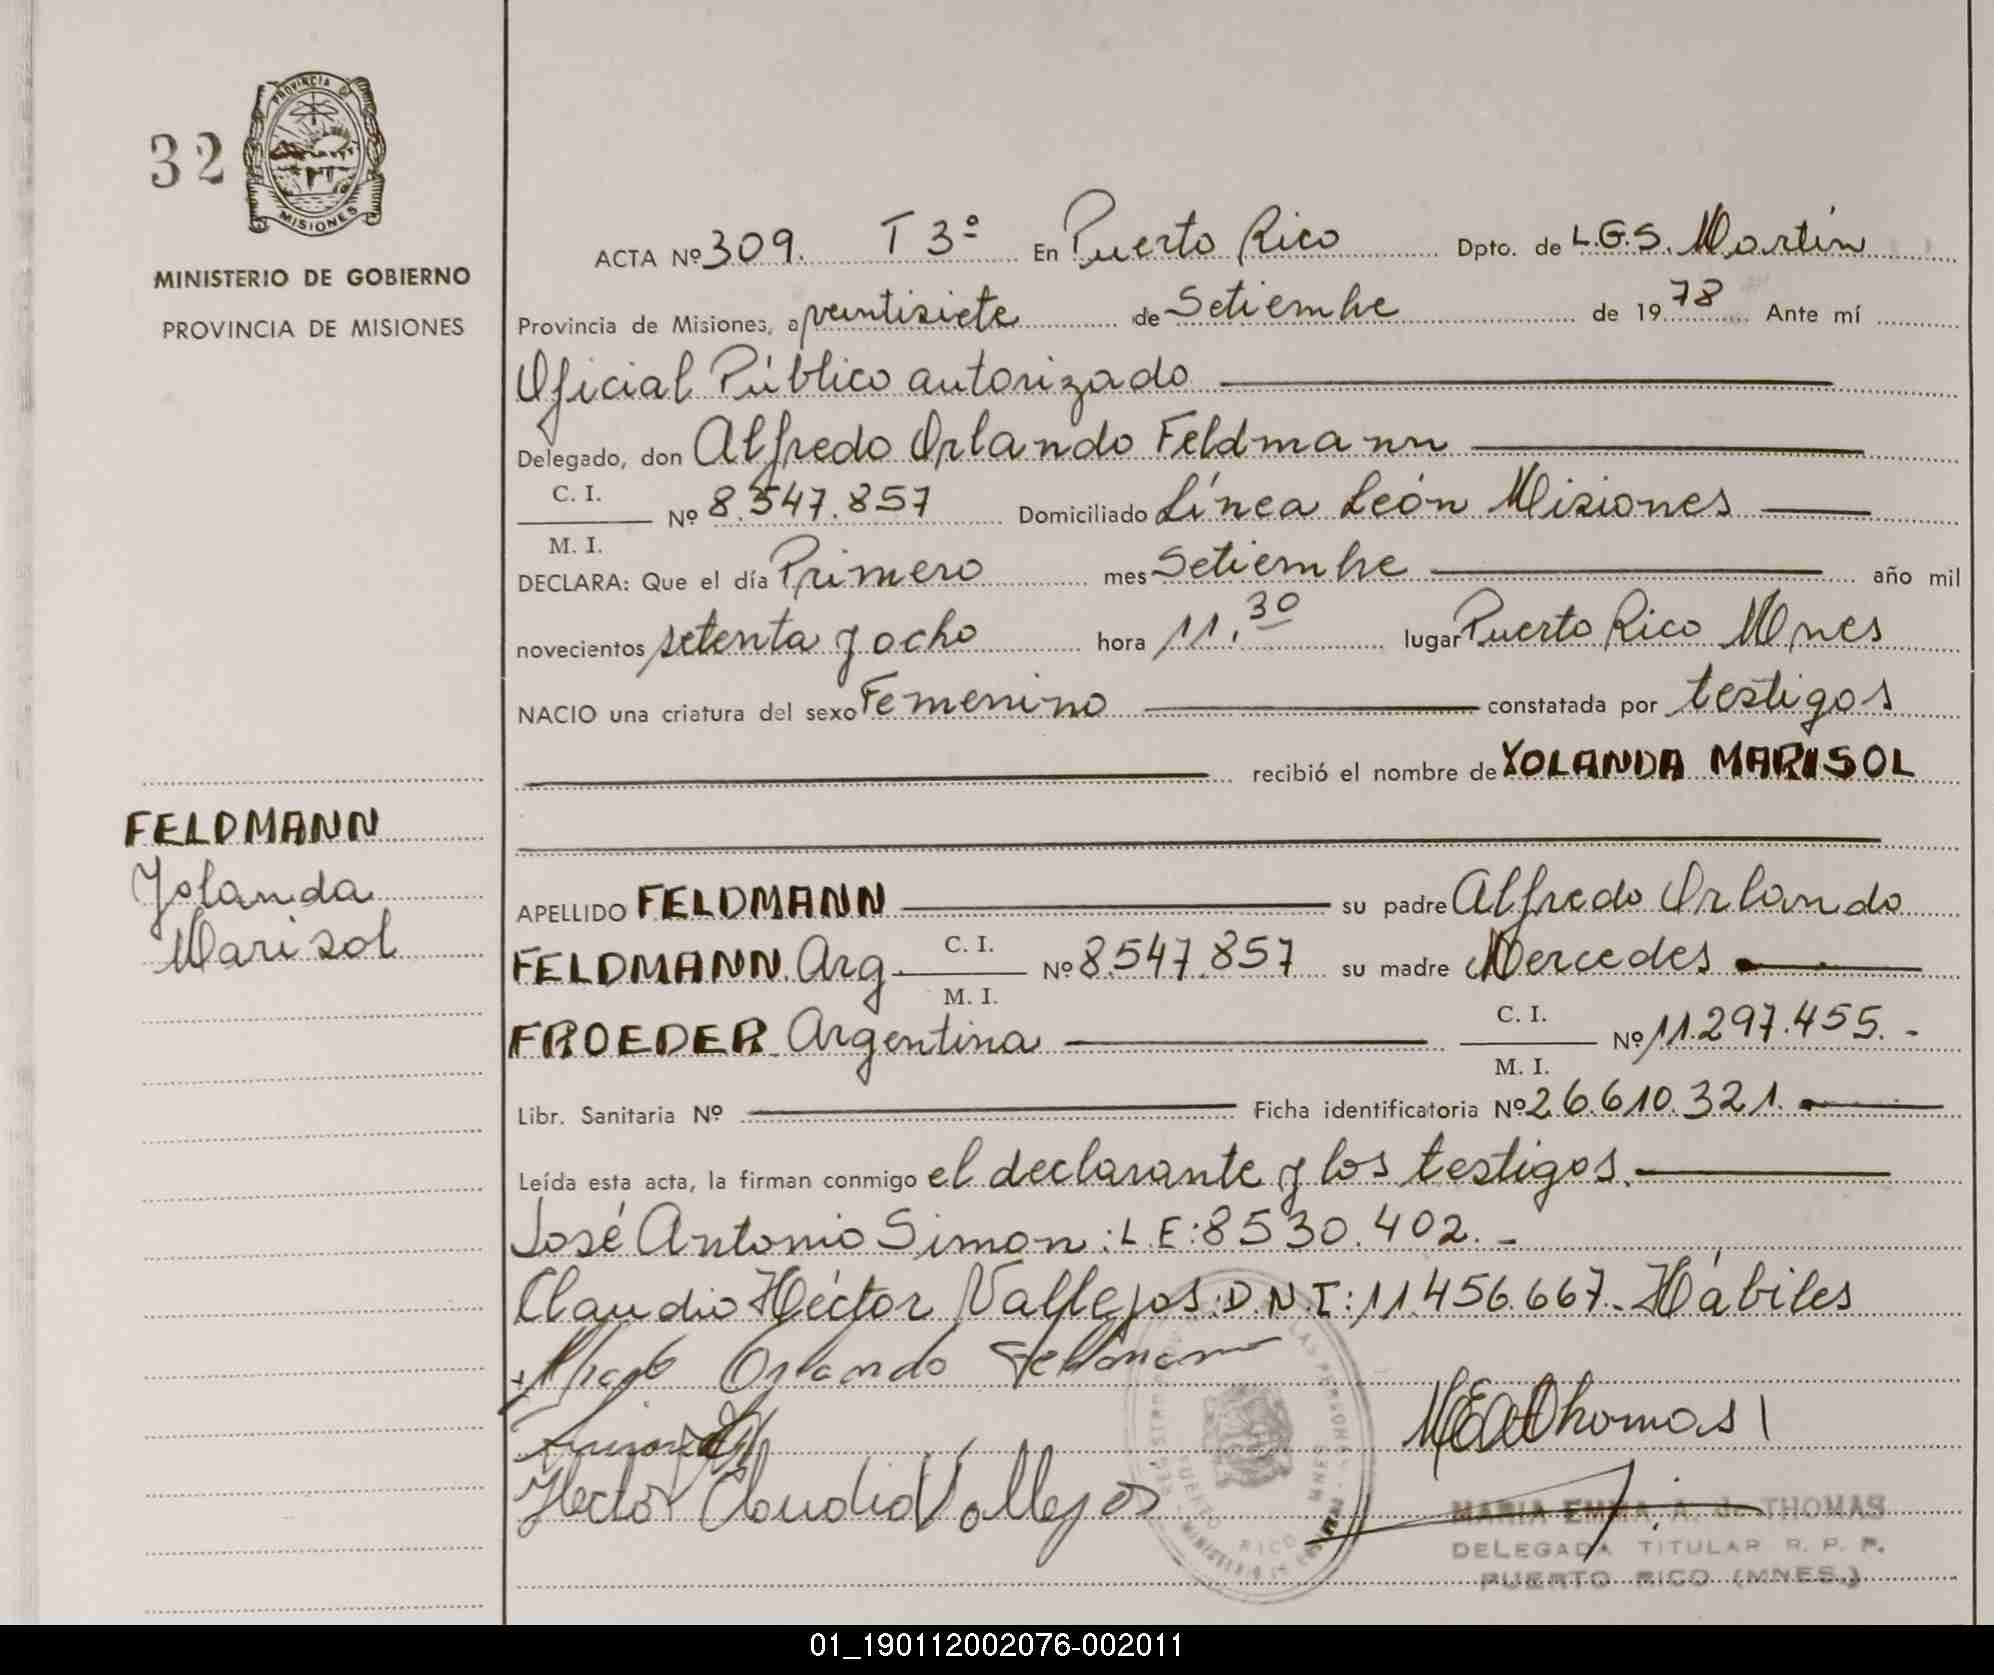 32
PROVINCIA DE
MISIONES
MINISTERIO DE GOBIERNO
PROVINCIA DE MISIONES
FELDMANN
Yolanda
Marisol
ACTA Nº 309. T 3º En Puerto Rico Dpto. de L.G.S. Martín
Provincia de Misiones, a veintisiete de Setiembre de 1978 Ante mí
Oficial Público autorizado
Delegado, don Alfredo Orlando Feldmann
C. I.
M. I. Nº 8.547.857 Domiciliado Línea León Misiones
DECLARA: Que el día Primero mes Setiembre año mil
novecientos setenta y ocho hora 11.30 lugar Puerto Rico Mnes
NACIO una criatura del sexo Femenino constatada por testigos
recibió el nombre de YOLANDA MARISOL
APELLIDO FELDMANN su padre Alfredo Orlando
FELDMANN. Arg C. I. M. I. Nº 8.547.857 su madre Mercedes
FROEDER Argentina C. I. M. I. Nº 11.297.455.-
Libr. Sanitaria Nº Ficha identificatoria Nº 26.610.321.
Leída esta acta, la firman conmigo el declarante y los testigos.
José Antonio Simon: L.E: 8530.402.-
Claudio Héctor Vallejos: D.N.I: 11.456.667.- Hábiles
Orlando Feldmann
MEAdThomas
Hector Claudio Vallejos
MARIA EMMA A. de THOMAS
DELEGADA TITULAR R. P. P.
PUERTO RICO (MNES.)
01_190112002076-002011